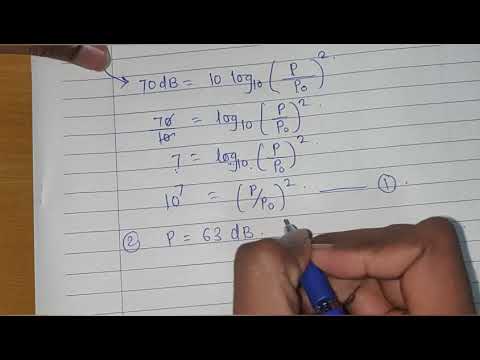 70 dB = 10 log₁₀ (P/P₀)².
70/10 = log₁₀ (P/P₀)².
7 = log₁₀ (P/P₀)².
10⁷ = (P/P₀)² . —— ①.
② P = 63 dB.